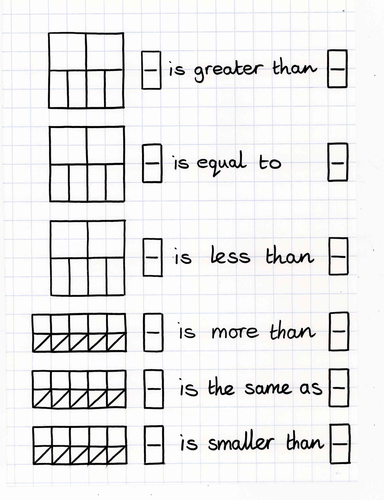 is greater than
is equal to
is less than
is more than
is the same as
is smaller than